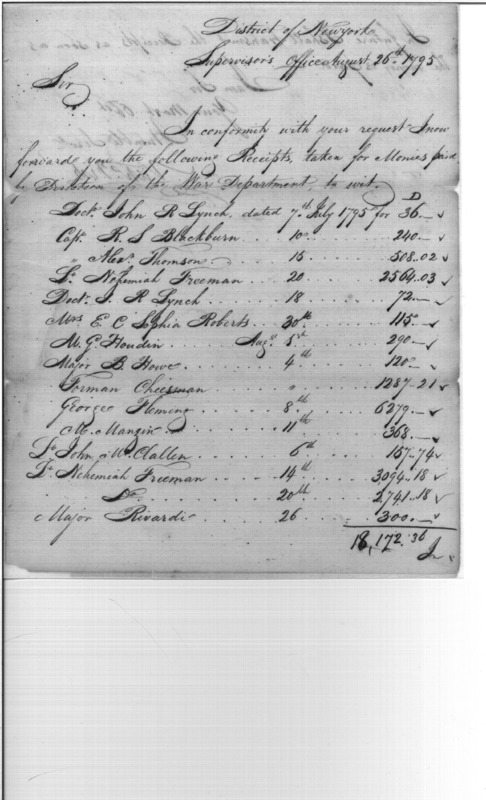 District of New york
Supervisor's Office August 26.th 1795
Sir
In conformity with your request I now
forward you the following Receipts, taken for Monies paid
by Direction of the War Department, to wit.
D
Doct.r John R Lynch, dated 7.th July 1795 for 36.—
Capt. R. S Blackburn 10 240.—
" Alex.r Thomson 15 508.02
Lt. Nehemiah Freeman 20 2564.03
Doct. J. R Lynch 18 72.—
Mrs E C Sophia Roberts 30th 115
M. G. Houdin Augt 5th 290—
Major B. Howe 4th 120
Forman Cheesman " 1287.21
George Fleming 8th 6279.—
M. Mangin 11th 368.—
Lt. John McClallen 6th 157.74
Lt. Nehemiah Freeman 14th 3094.18
Do. 20th 2,741.18
Major Rivardi 26 300.—
18,172.36
In